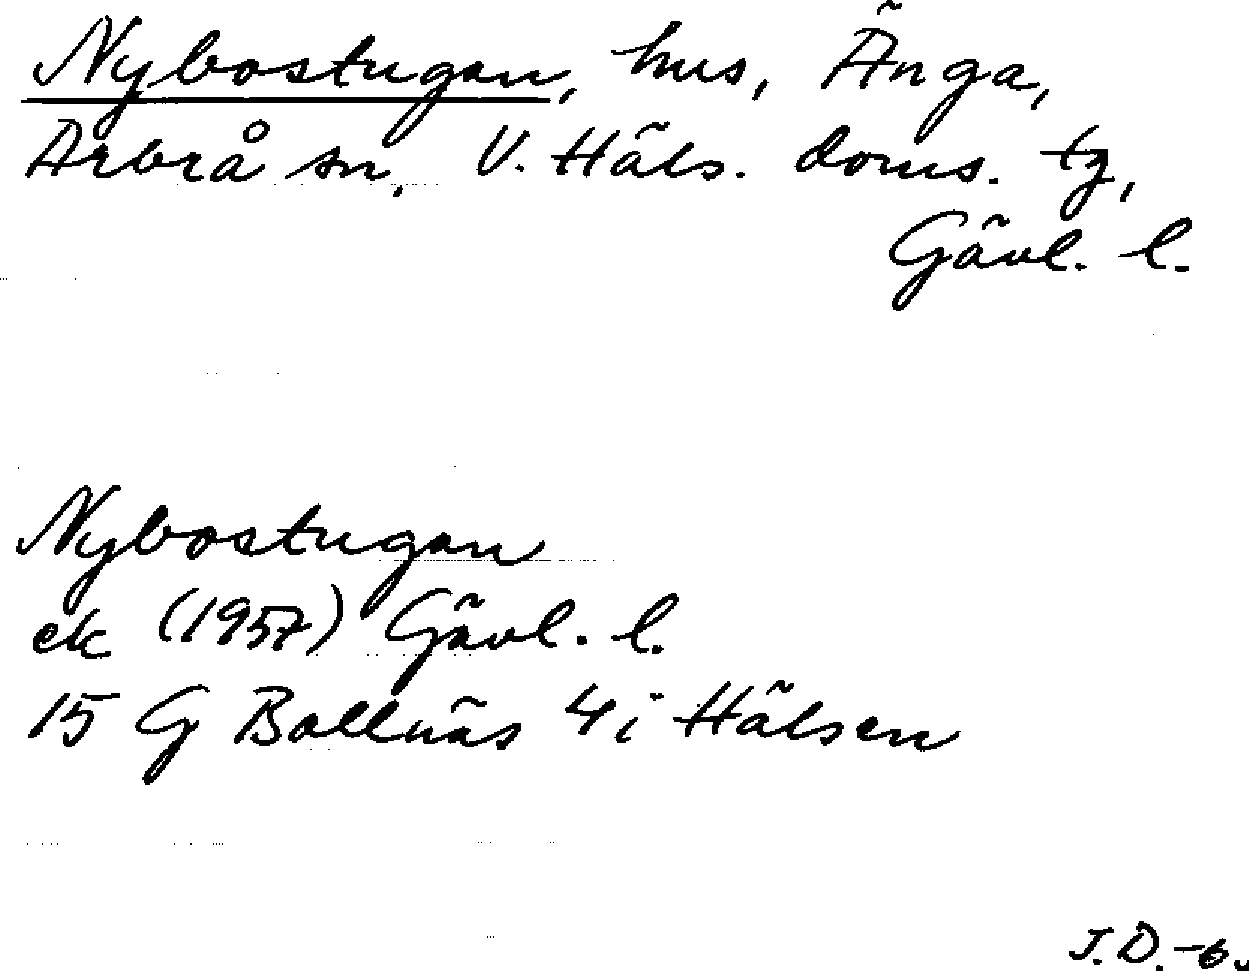 Nybostugan, hus, Änga,
Arbrå sn, V. Häls. doms. tg,
Gävl. l.
Nybostugan
ek (1957) Gävl. l.
15 G Bollnäs 4i Hälsen
J.D.-6.